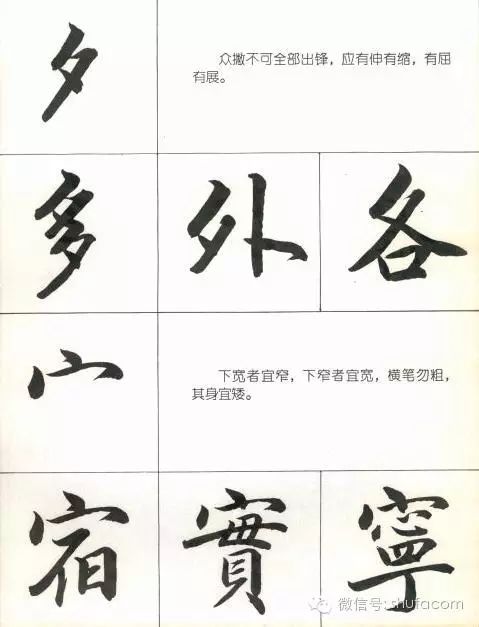 夕
众撇不可全部出锋，应有伸有缩，有屈
有展。
多 外 各
宀
下宽者宜窄，下窄者宜宽，横笔勿粗，
其身宜矮。
宿 實 寧
微信号: shufacom